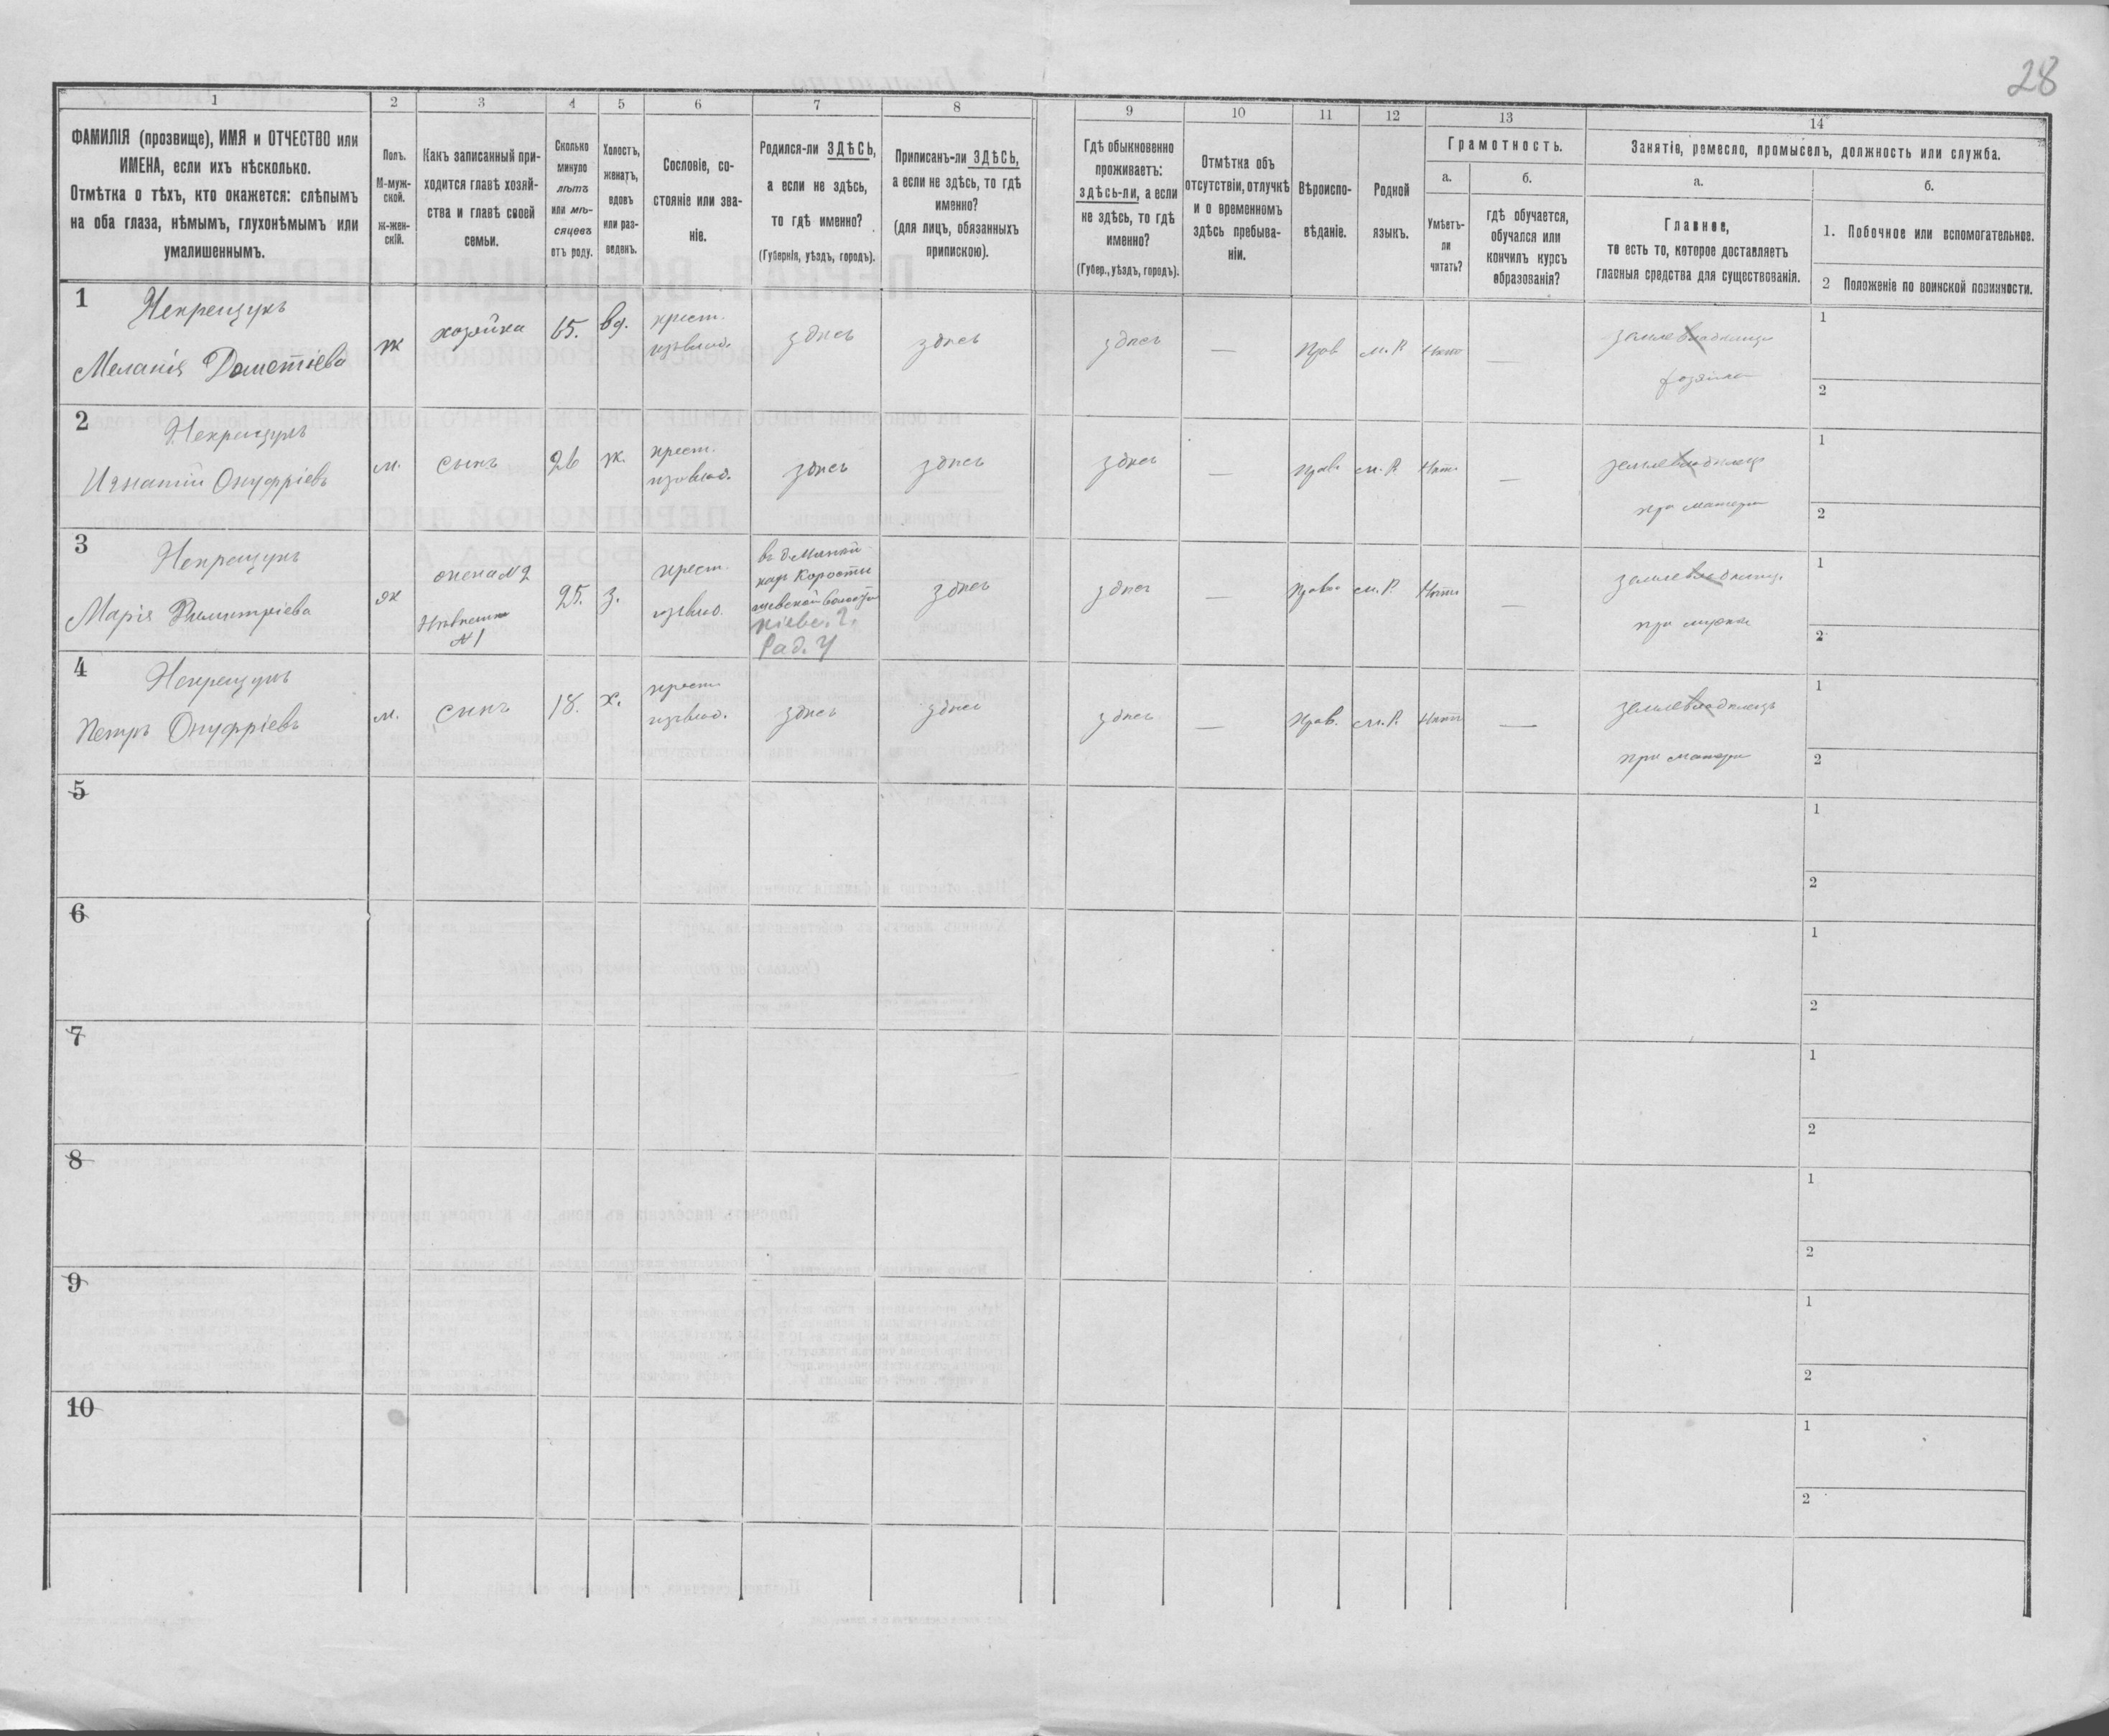 28
1 2 3 4 5 6 7 8 9 10 11 12 13 14
ФАМИЛІЯ (прозвище), ИМЯ и ОТЧЕСТВО или
ИМЕНА, если ихъ нѣсколько.
Отмѣтка о тѣхъ, кто окажется: слѣпымъ
на оба глаза, нѣмымъ, глухонѣмымъ или
умалишеннымъ.
Полъ.
М-муж-
ской.
ж-жен-
скій.
Какъ записанный при-
ходится главѣ хозяй-
ства и главѣ своей
семьи.
Сколько
минуло
лѣтъ
или мѣ-
сяцевъ
отъ роду.
Холостъ,
женатъ,
вдовъ
или раз-
веденъ.
Сословіе, со-
стояніе или зва-
ніе.
Родился-ли ЗДѢСЬ,
а если не здѣсь,
то гдѣ именно?
(Губернія, уѣздъ, городъ).
Приписанъ-ли ЗДѢСЬ,
а если не здѣсь, то гдѣ
именно?
(для лицъ, обязанныхъ
припискою).
Гдѣ обыкновенно
проживаетъ:
здѣсь-ли, а если
не здѣсь, то гдѣ
именно?
(Губер., уѣздъ, городъ).
Отмѣтка объ
отсутствіи, отлучкѣ
и о временномъ
здѣсь пребыва-
ніи.
Вѣроиспо-
вѣданіе.
Родной
языкъ.
Грамотность.
а.
Умѣетъ-
ли
читать?
б.
гдѣ обучается,
обучался или
кончилъ курсъ
образованія?
Занятіе, ремесло, промыселъ, должность или служба.
а.
Главное,
то есть то, которое доставляетъ
главныя средства для существованія.
б.
1. Побочное или вспомогательное.
2 Положеніе по воинской повинности.
1
Некрещукъ
Меланія Дометіева
ж
хозяйка
65.
вд.
крест.
здѣсь
здѣсь
здѣсь
—
Прав
м. Р
Нѣтъ
—
землевладѣлица
хозяйка
1
2
2
Некрещукъ
Игнатій Онуфріевъ
м.
сынъ
26
ж.
крест.
здѣсь
здѣсь
здѣсь
—
Прав.
м. Р
Нѣтъ
—
землевладѣлецъ
при матери
1
2
3
Некрещукъ
Марія Димитріева
ж
жена №2
Невѣстка
№1
25.
з.
крест.
Коростышевской волости
Кіевс. г.
Рад. у
здѣсь
здѣсь
Прав.
м. Р.
Нѣтъ
—
землевладѣлица
при мужѣ
1
2
4
Некрещукъ
Петръ Онуфріевъ
м.
сынъ
18.
х.
крест.
здѣсь
здѣсь
здѣсь
—
Прав.
м. Р.
Нѣтъ
—
землевладѣлецъ
при матери
1
2
5
1
2
6
1
2
7
1
2
8
1
2
9
1
2
10
1
2